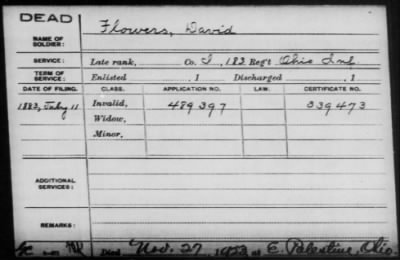 DEAD
NAME OF SOLDIER: Flowers, David
SERVICE: Late rank, Co. I, 182 Reg't Ohio Inf
TERM OF SERVICE: Enlisted , 1 Discharged , 1
DATE OF FILING. CLASS. APPLICATION NO. LAW. CERTIFICATE NO.
1883, July 11 Invalid, 489397 339473
Widow,
Minor,
ADDITIONAL SERVICES:
REMARKS:
Died Nov. 27, at E. Palestine, Ohio.